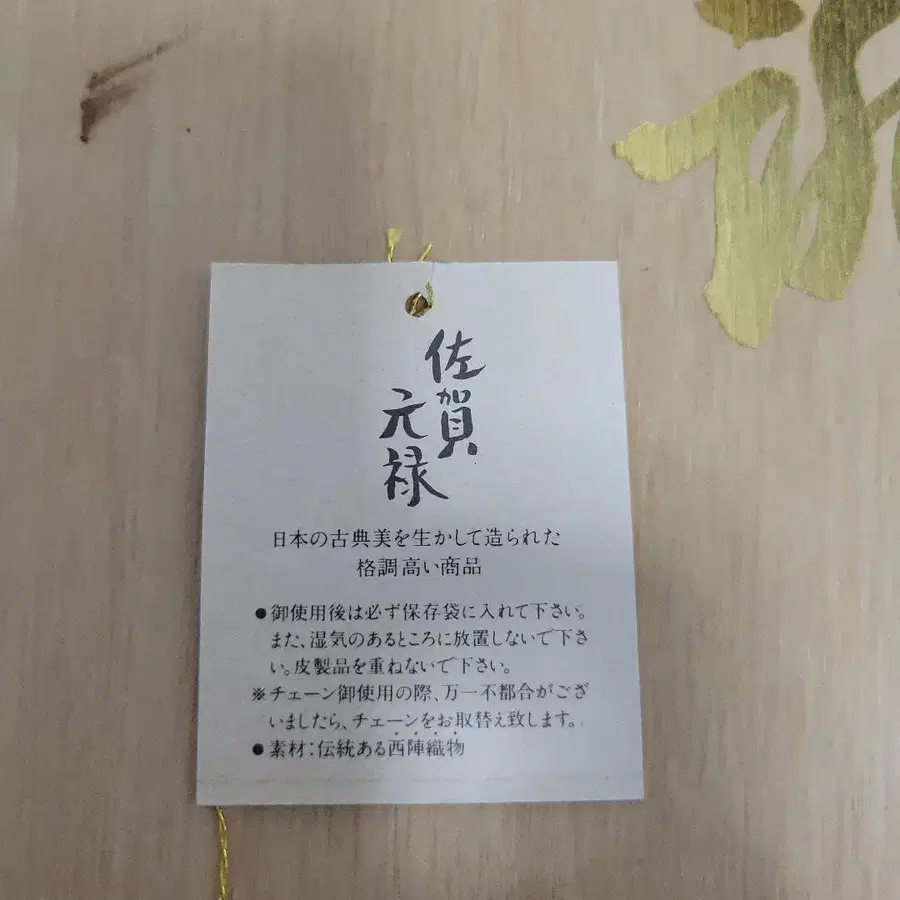 佐賀
元禄
日本の古典美を生かして造られた
格調高い商品
●御使用後は必ず保存袋に入れて下さい。
また、湿気のあるところに放置しないで下さ
い。皮製品を重ねないで下さい。
※チェーン御使用の際、万一不都合がござ
いましたら、チェーンをお取替え致します。
●素材：伝統ある西陣織物